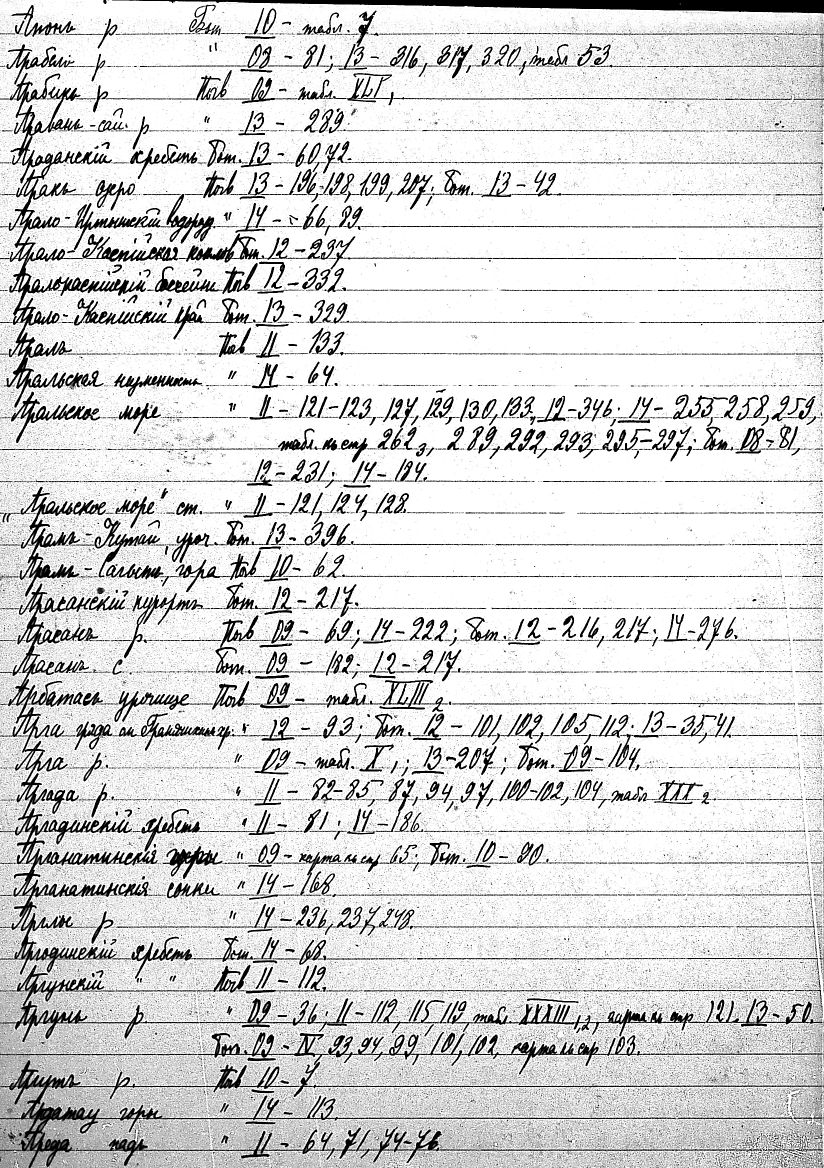 Апонъ р Бот 10 – табл. 7.
Арабели р " 08 – 81; 13 – 316, 317, 320, табл 53.
Арабикъ р Почв 09 – табл. XLI,
Араванъ-сай. р " 13 – 289.
Араданскій хребетъ Бот. 13 – 60, 72.
Аракъ озеро Почв 13 – 196, 198, 199, 207; Бот. 13 – 42.
Арало-Иртышскій водоразд. " 14 – 66, 89.
Арало-Каспійская Бот. 12 – 237.
Аралокаспійскій бассейнъ Почв 12 – 332.
Арало-Каспійскій край Бот. 13 – 329
Аралъ Почв 11 – 133.
Аральская низменность " 14 – 64.
Аральское море " 11 – 121–123, 127, 129, 130, 133, 12 – 346; 14 – 255, 258, 259,
табл. къ стр 262₃, 289, 292, 293, 295–297; Бот. 08 – 81,
12 – 231; 14 – 184.
„Аральское море" ст. " 11 – 121, 124, 128.
Арамъ-Кутай, уроч. Бот. 13 – 396.
Арамъ-Сагытъ, гора Почв 10 – 62.
Арасанскій курортъ Бот. 12 – 217.
Арасанъ р. Почв 09 – 69; 14 – 222; Бот. 12 – 216, 217; 14 – 276.
Арасанъ с. Бот. 09 – 182; 12 – 217.
Арбатасъ урочище Почв 09 – табл. XLIII₂.
Арга гряда гр. " 12 – 93; Бот. 12 – 101, 102, 105, 112; 13 – 35, 41.
Арга р. " 09 – табл. X₁; 13 – 207; Бот. 09 – 104.
Аргада р. " 11 – 82–85, 87, 94, 97, 100–102, 104, табл XXX₂.
Аргадинскій хребетъ " 11 – 81; 14 – 186.
Арганатинскія горы " 09 – карта къ стр 65; Бот. 10 – 90.
Арганатинскія сопки " 14 – 168.
Арглы р " 14 – 236, 237, 248.
Аргодинскій хребетъ Бот. 14 – 68.
Аргунскій " " Почв 11 – 112.
Аргунь р. " 09 – 36; 11 – 112, 115, 119, табл. XXXIII₁,₂, карта къ стр 121. 13 – 50.
Бот. 09 – IV, 93, 94, 99, 101, 102, карта къ стр 103.
Аргутъ р. Почв 10 – 7.
Ардатау горы " 14 – 113.
Ареда падь " 11 – 64, 71, 74–76.